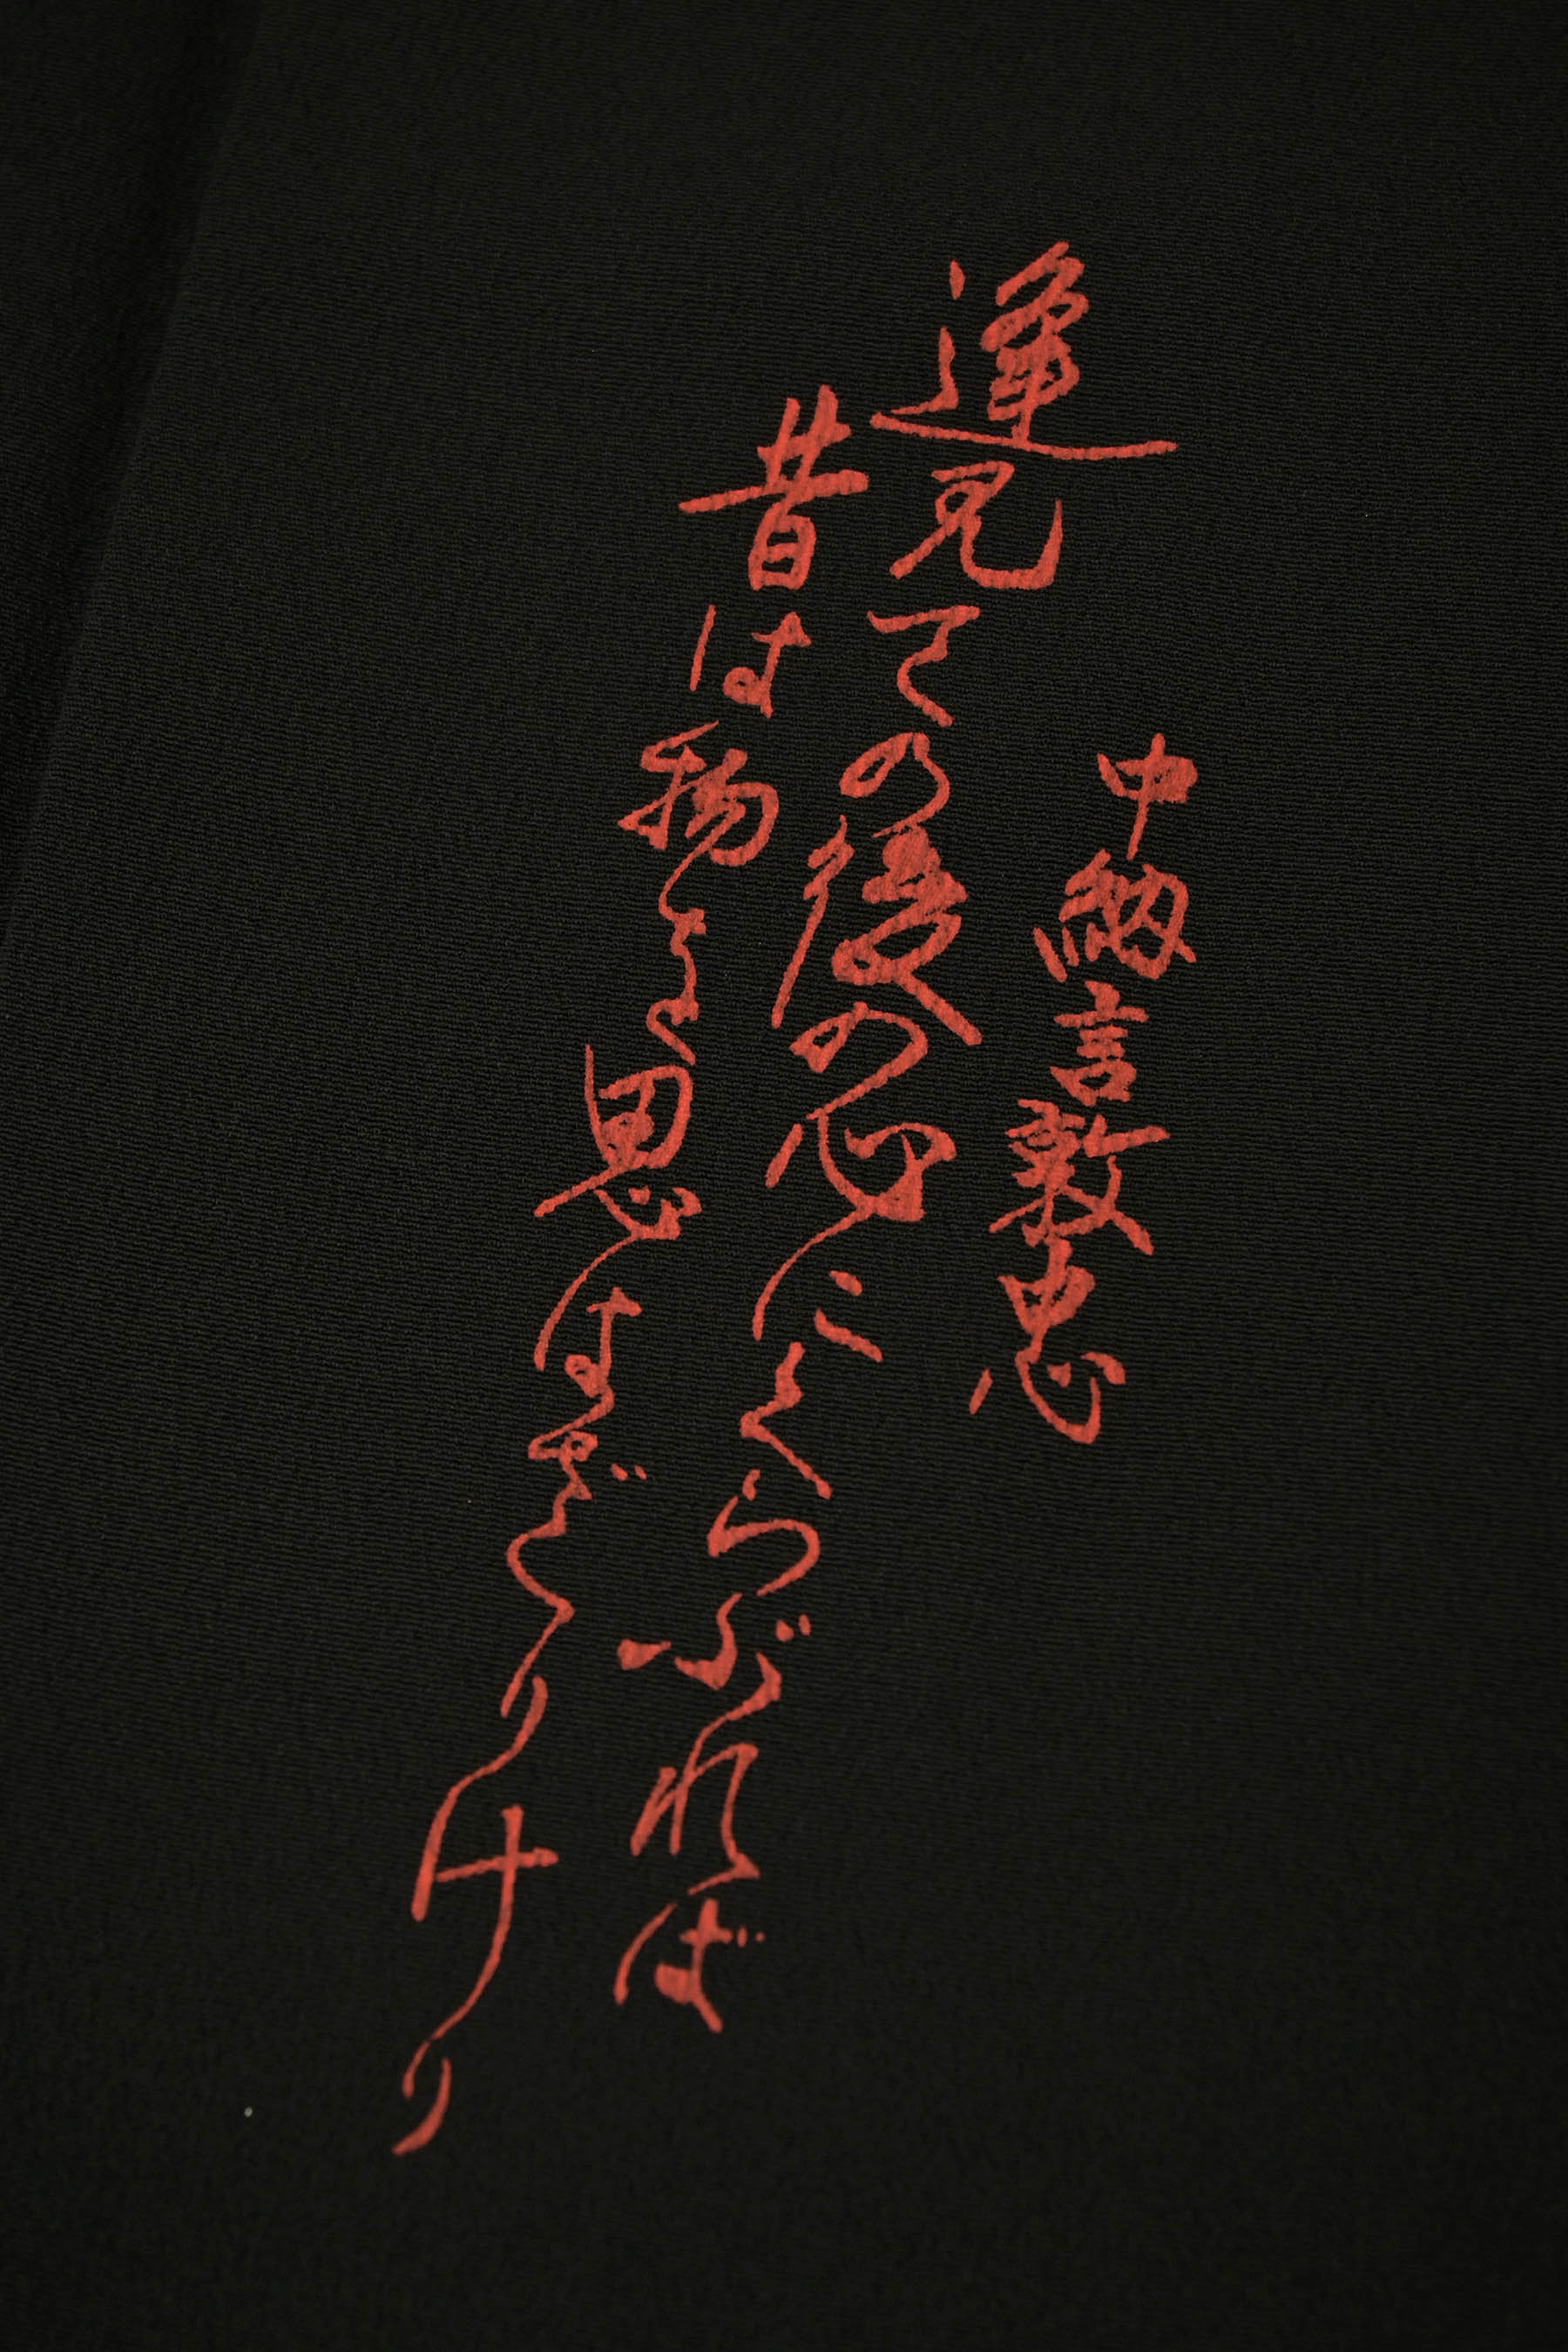 中納言敦忠
逢見ての後の心にくらぶれば
昔は物を思はざりけり